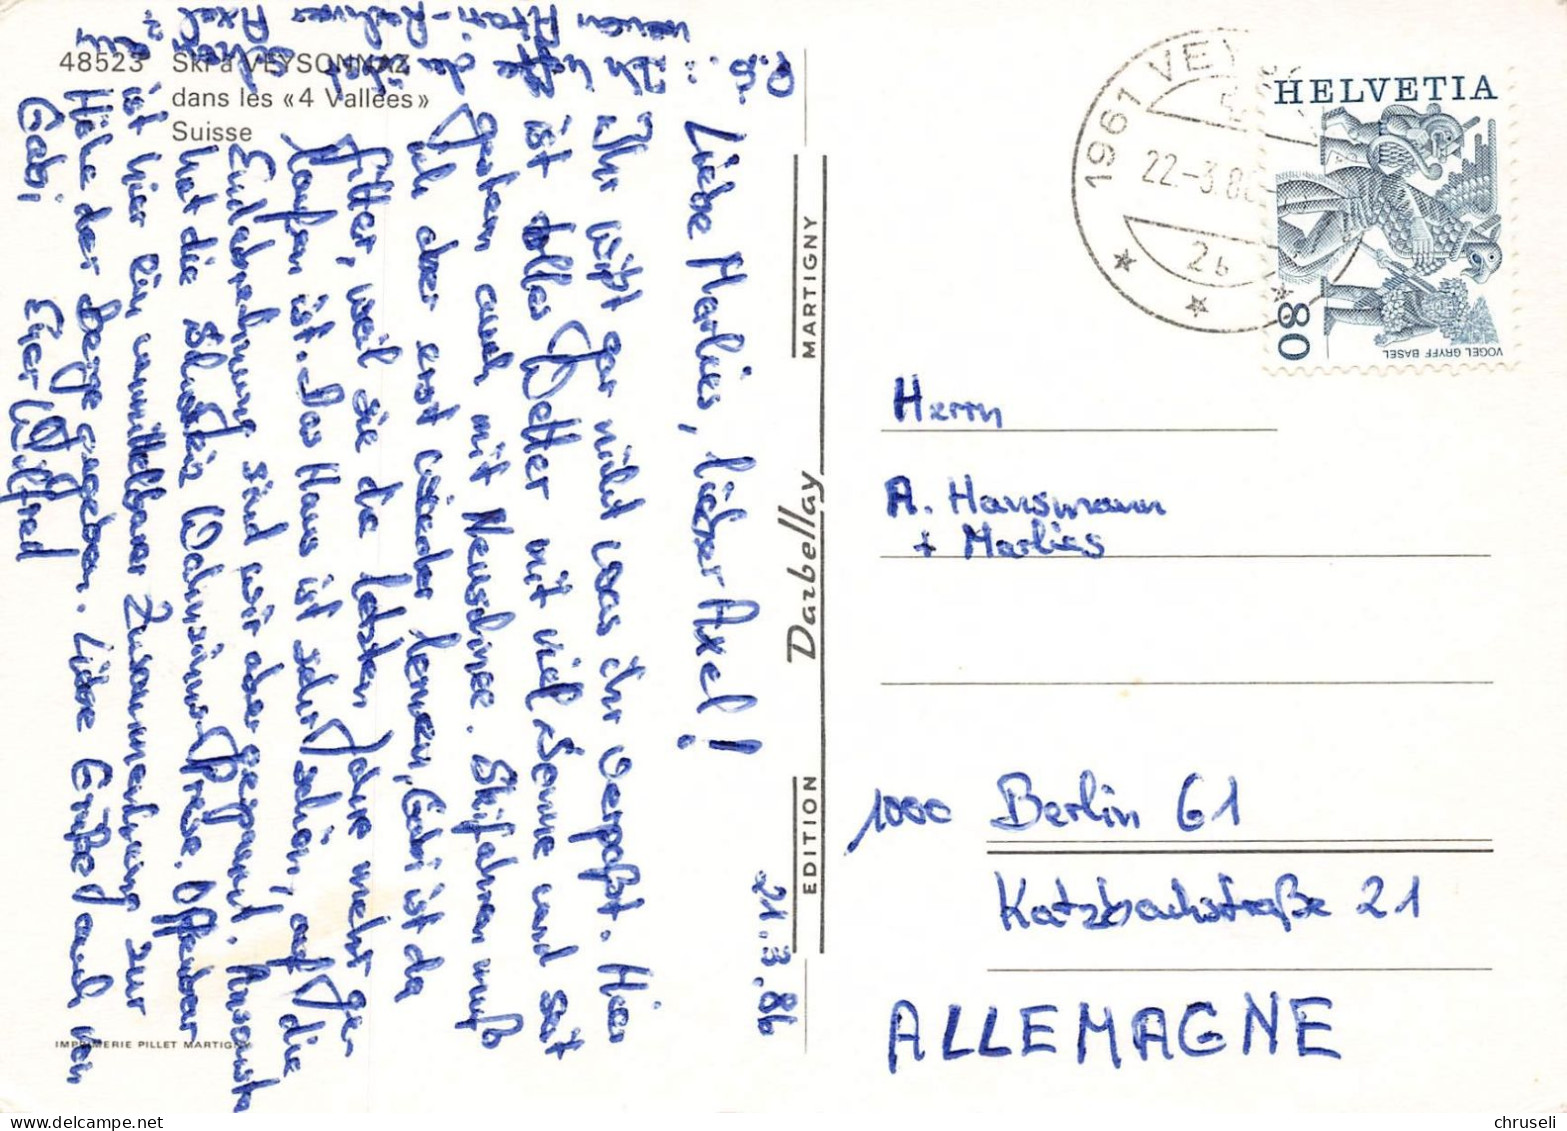 48523 Ski à VEYSONNAZ
dans les «4 Vallées»
Suisse
21.3.86
Liebe Marlies, lieber Axel!
Ihr wißt gar nicht was ihr verpaßt. Hier
ist tolles Wetter mit viel Sonne und seit
gestern auch mit Neuschnee. Skifahren muß
ich aber erst wieder lernen, Gabi ist da
fitter, weil sie die letzten Jahre mehr ge-
laufen ist. Das Haus ist sehr schön, auf die
Endabrechnung sind wir aber gespannt. Ansonsten
hat die Schweiz Wahnsinns-Preise. Offenbar
ist hier ein unmittelbarer Zusammenhang zur
Höhe der Berge gegeben. Liebe Grüße auch von
Gabi, Euer Wilfred
P.S.: Ich hoffe
Axel
IMPRIMERIE PILLET MARTIGNY
EDITION Darbellay MARTIGNY
1961 VEY
22-3.86
2b
HELVETIA
80
VOGEL GRYFF BASEL
Herrn
A. Hausmann
+ Marlies
1000 Berlin 61
Katzbachstraße 21
ALLEMAGNE
chruseli